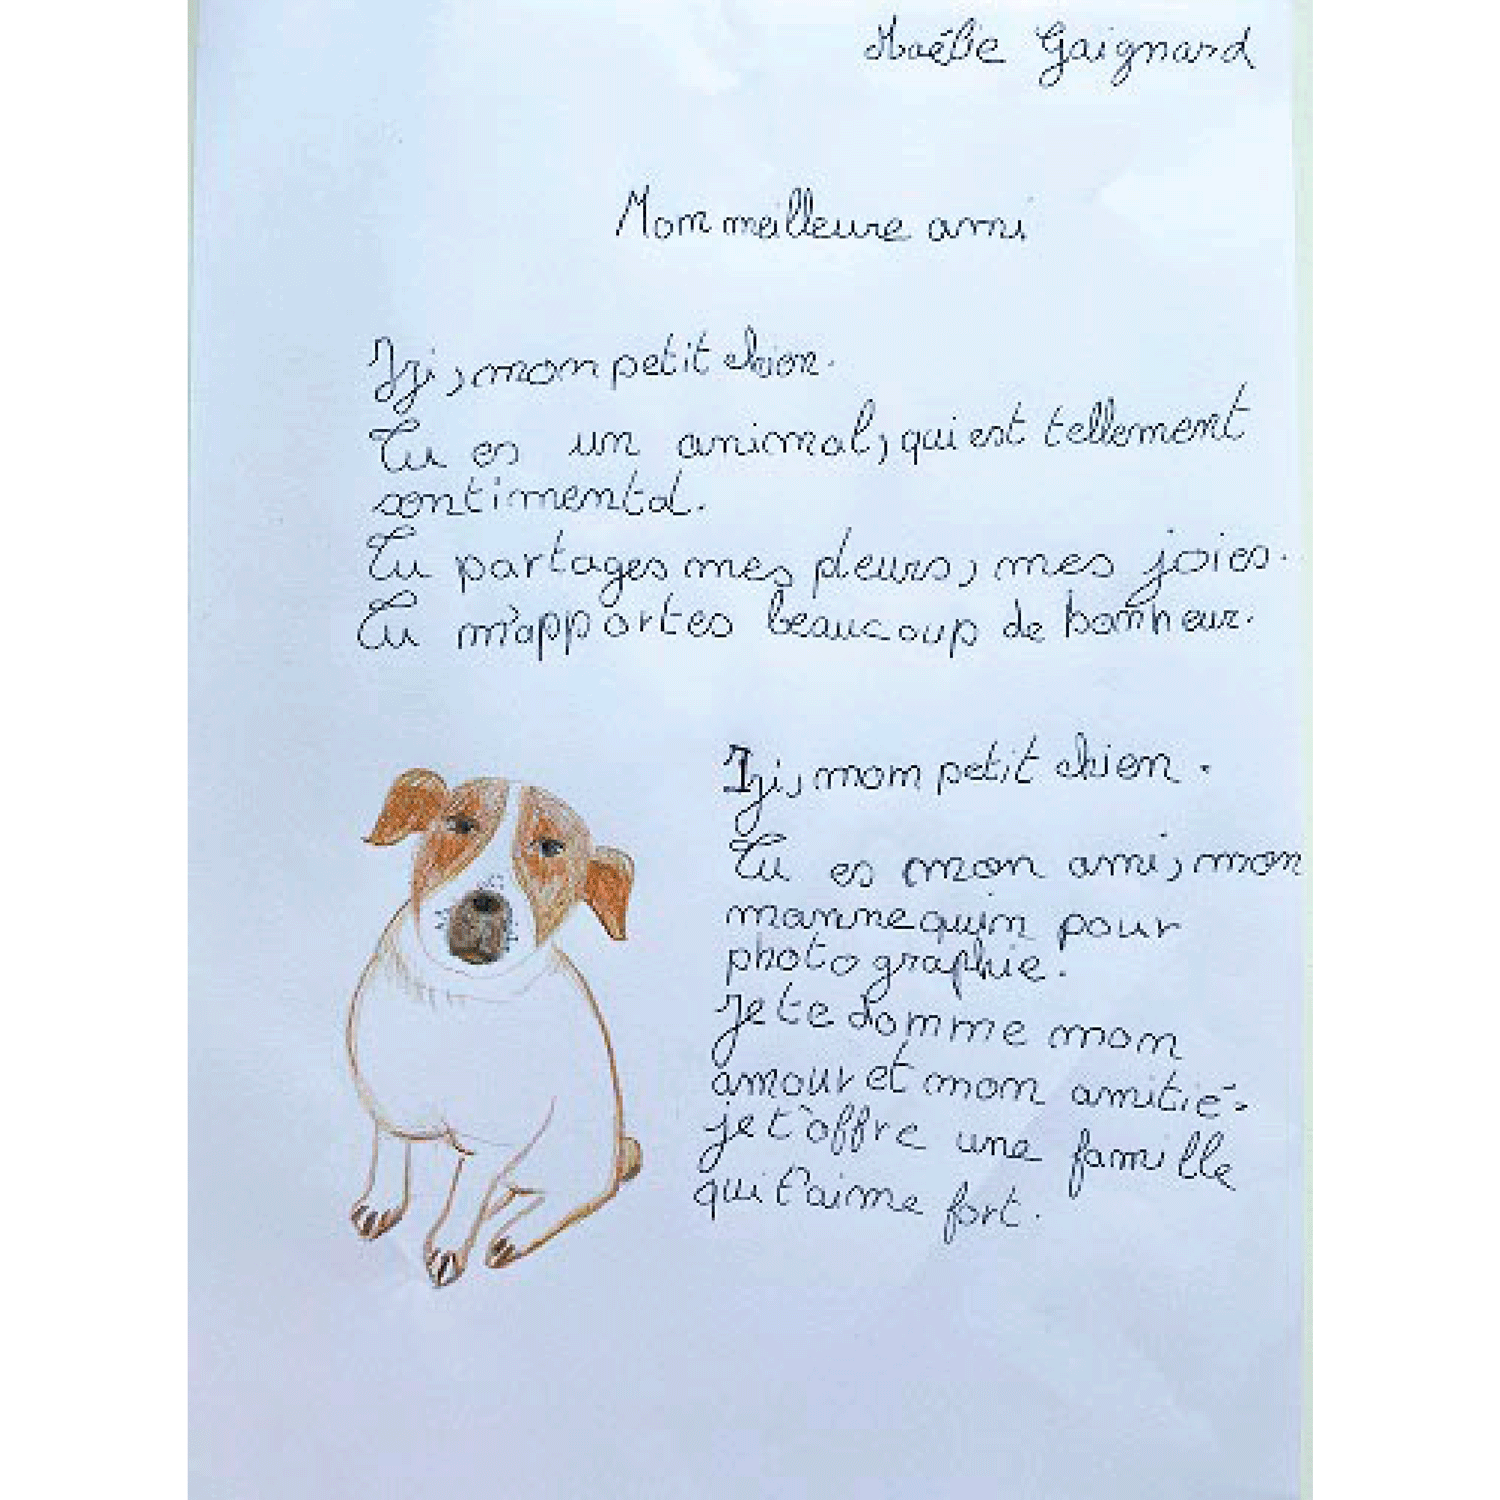 Maélie Gaignard
Mon meilleure ami
Izi, mon petit chien.
Tu es un animal, qui est tellement
sentimental.
Tu partages mes pleurs, mes joies.
Tu m'apportes beaucoup de bonheur.
Izi, mon petit chien.
Tu es mon ami, mon
mannequin pour
photographie.
Je te donne mon
amour et mon amitié.
je t'offre une famille
qui t'aime fort.